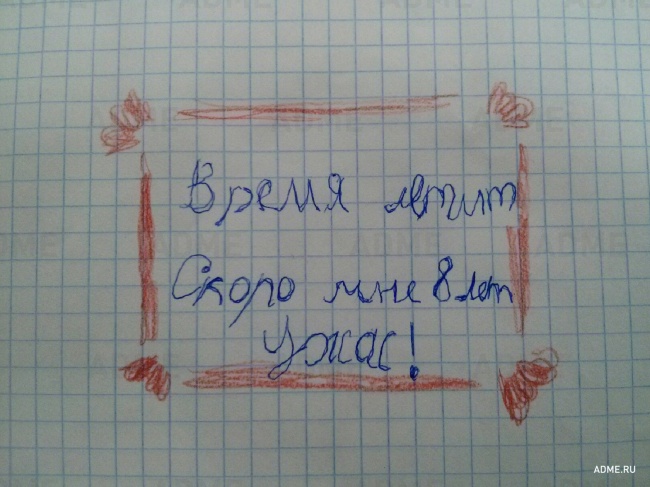 Время летит
Скоро мне 8 лет
Ужас!
ADME.RU